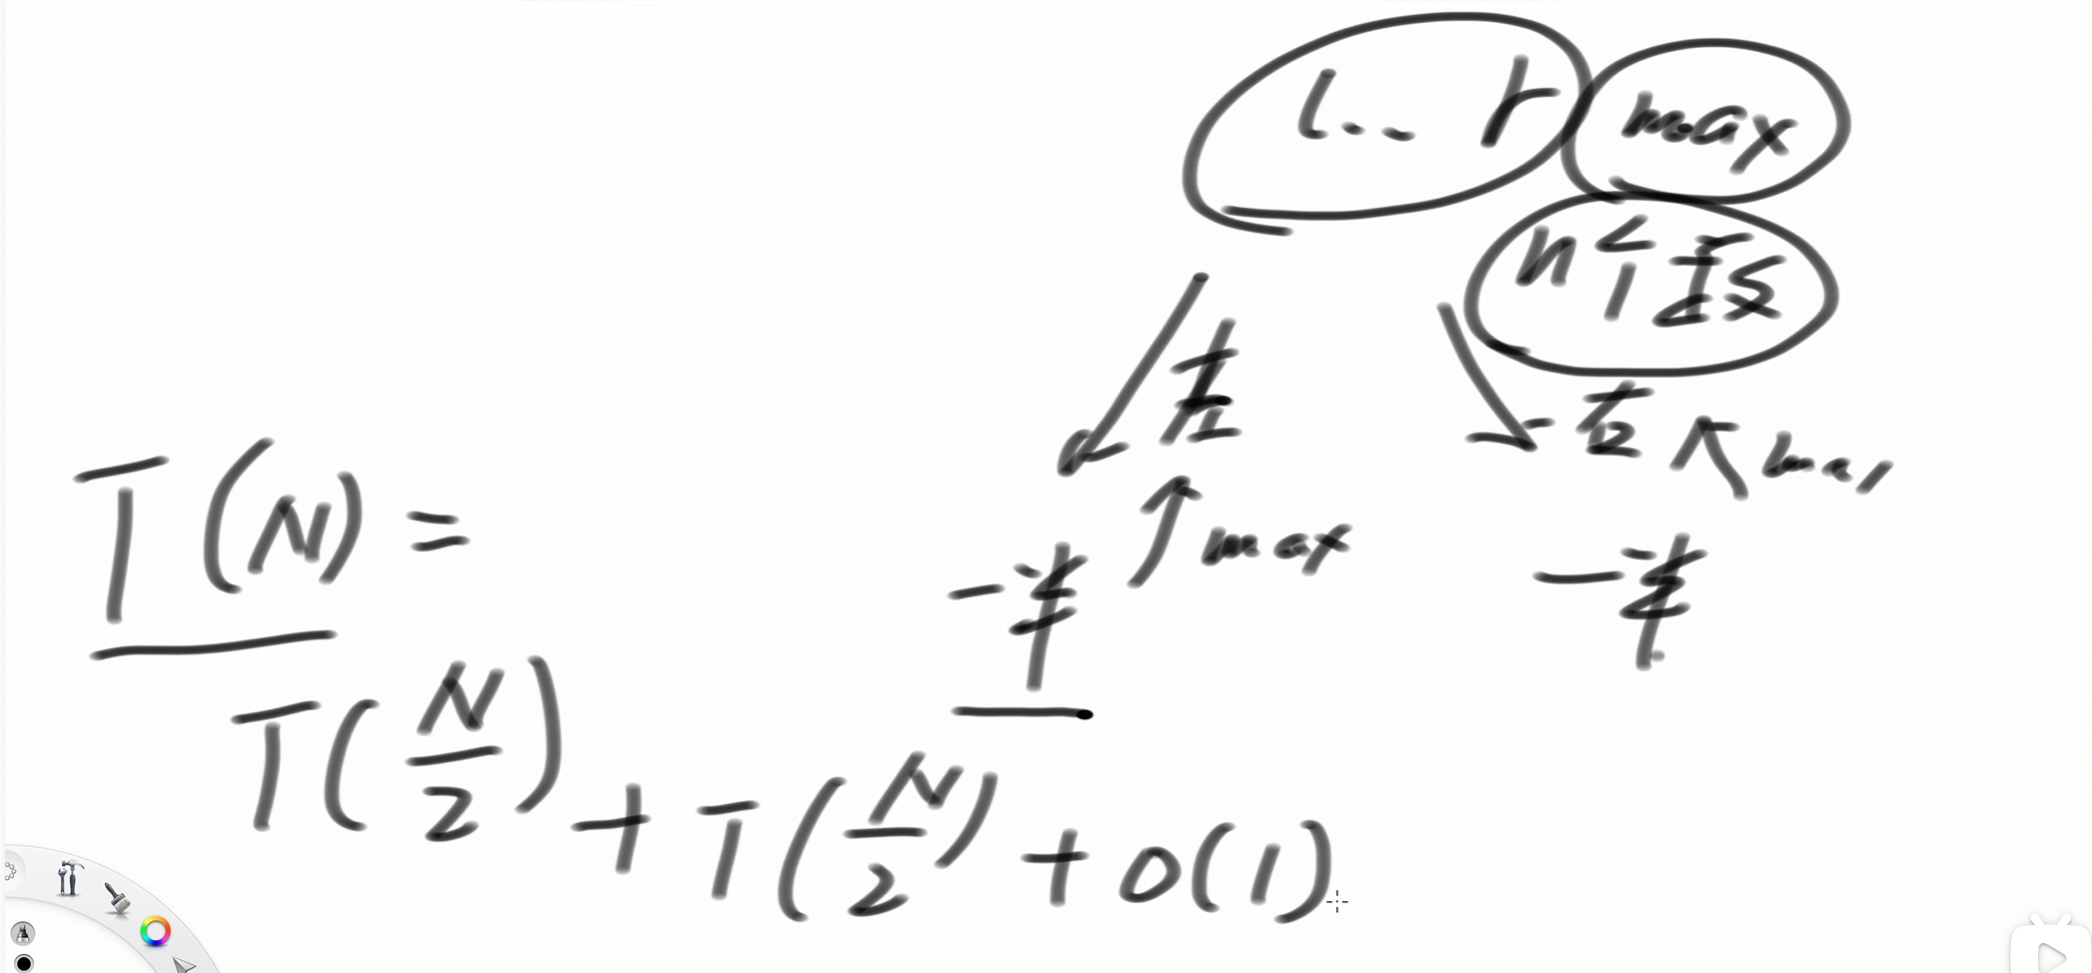 l... r max
n个数
左
右 max
max
一半
一半
T(N)=
T(N/2) + T(N/2) + O(1)